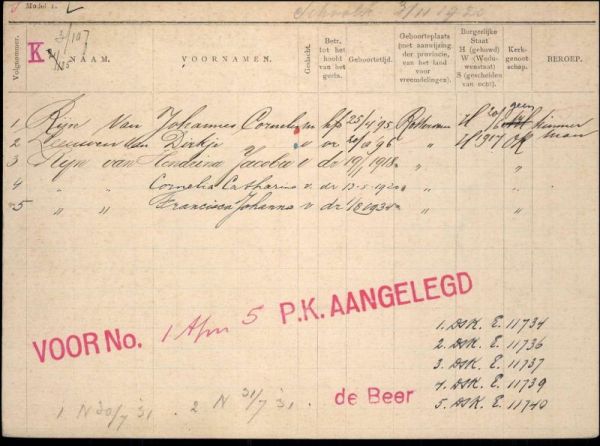 Model 1.
K
Volgnummer.
NAAM.
VOORNAMEN.
Geslacht.
Betr.
tot het
hoofd
van het
gezin.
Geboortetijd.
Geboorteplaats
(met aanwijzing
der provincie,
van het land
voor
vreemdelingen).
Burgerlijke
Staat
H (gehuwd)
W (Weduwenstaat)
S (gescheiden
van echt).
Kerkgenootschap.
BEROEP.
1 Rijn van Johannes Cornelis m hfd 25/4 '95 Rotterdam H geen timmerman
2 Leeuwen van Dirkje v vr 20/9 '96 " 1917
3 Rijn van Jacoba v dr 19/11 1918 " "
4 " " Cornelia Catharina v. dr 13-5-1920 " "
5 " " Francisca Johanna v. dr " "
VOOR No. 1 5 P.K. AANGELEGD
1. DSK. E. 11734
2. DSK. E. 11736
3. DSK. E. 11737
4. DSK. E. 11739
5. DSK. E. 11740
de Beer
1 N 30/7 '31. 2 N 31/7 '31.